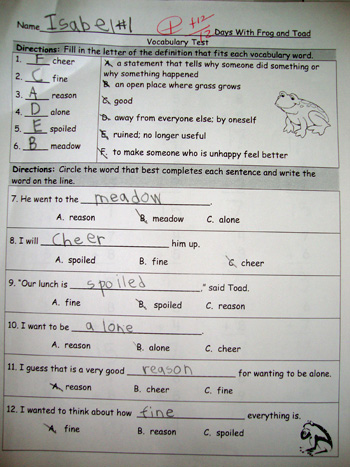 Name Isabel #1 +12 12 Days With Frog and Toad
Vocabulary Test
Directions: Fill in the letter of the definition that fits each vocabulary word.
1. F cheer A. a statement that tells why someone did something or why something happened
2. C fine B. an open place where grass grows
3. A reason C. good
4. D alone D. away from everyone else; by oneself
5. E spoiled E. ruined; no longer useful
6. B meadow F. to make someone who is unhappy feel better
Directions: Circle the word that best completes each sentence and write the
word on the line.
7. He went to the meadow.
A. reason B. meadow C. alone
8. I will cheer him up.
A. spoiled B. fine C. cheer
9. "Our lunch is spoiled," said Toad.
A. fine B. spoiled C. reason
10. I want to be alone.
A. reason B. alone C. cheer
11. I guess that is a very good reason for wanting to be alone.
A. reason B. cheer C. fine
12. I wanted to think about how fine everything is.
A. fine B. reason C. spoiled